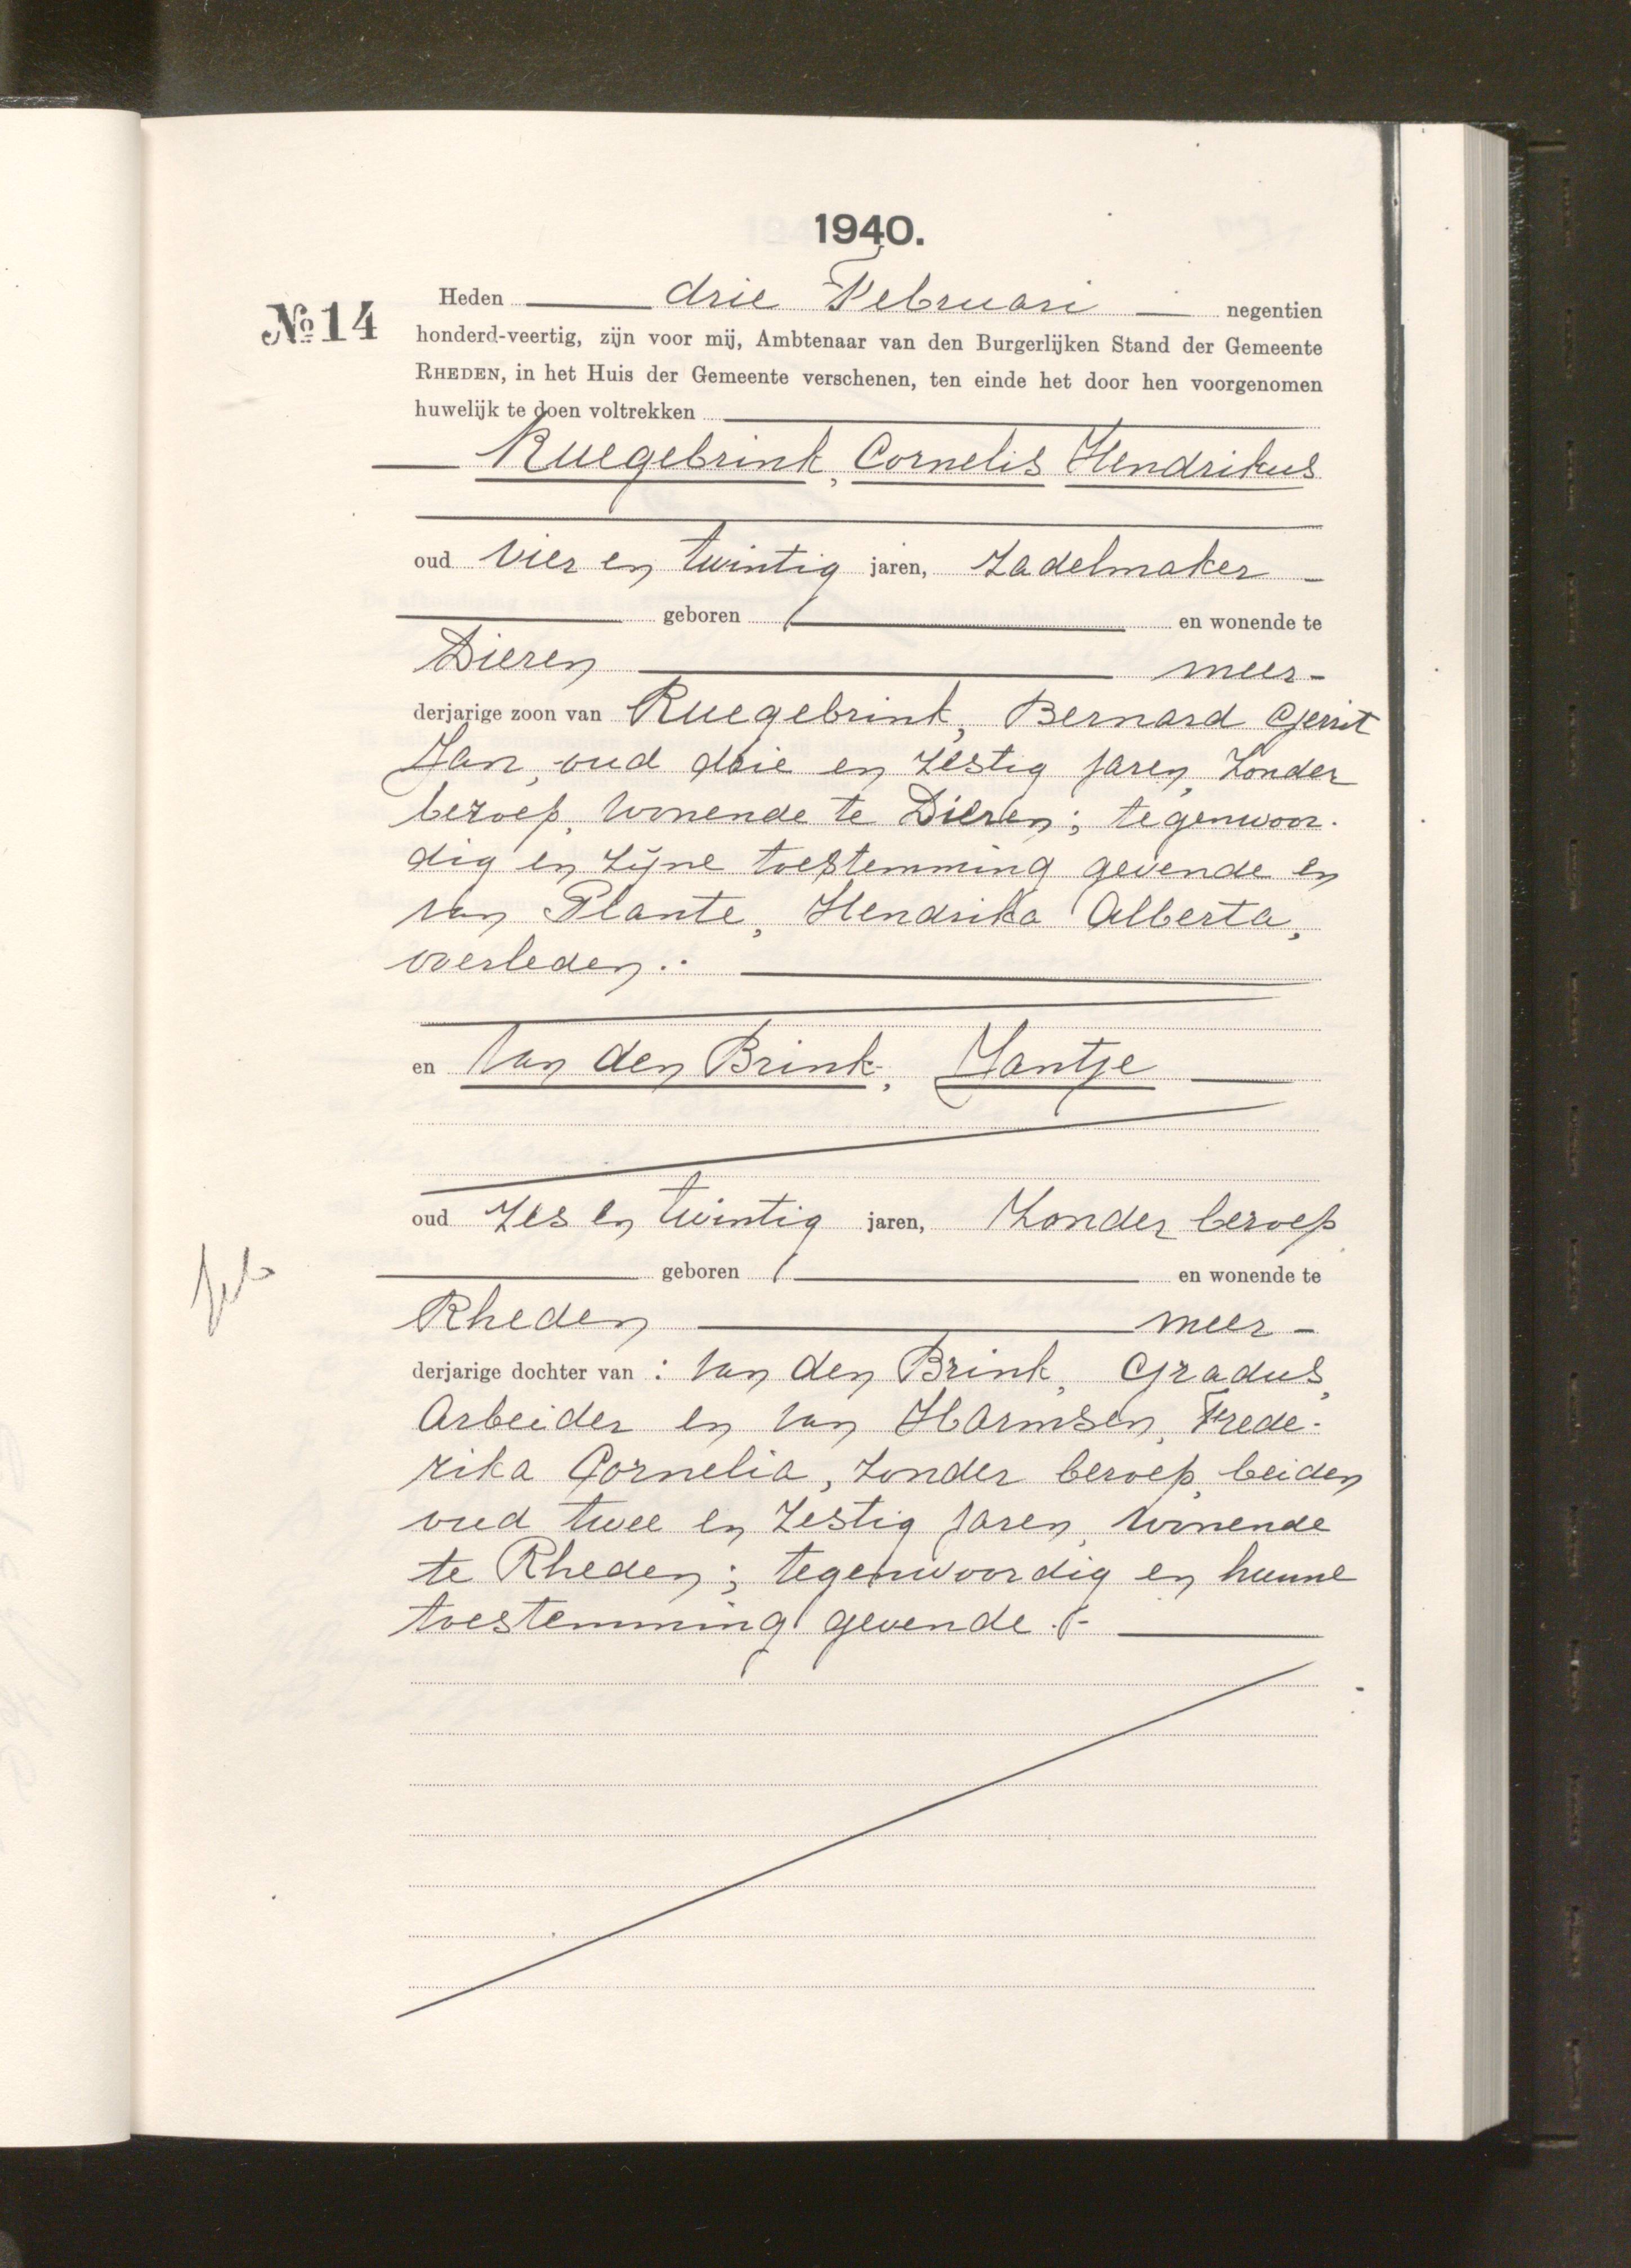 1940.
Heden drie Februari negentien
№ 14
honderd-veertig, zijn voor mij, Ambtenaar van den Burgerlijken Stand der Gemeente
RHEDEN, in het Huis der Gemeente verschenen, ten einde het door hen voorgenomen
huwelijk te doen voltrekken
Ruegebrink, Cornelis Hendrikus
oud vier en twintig jaren, Zadelmaker
geboren en wonende te
Dieren meer-
derjarige zoon van Ruegebrink, Bernard Gerrit
Jan, oud drie en zestig jaren, Zonder
beroep, wonende te Dieren; tegenwoor-
dig en zijne toestemming gevende en
van Plante, Hendrika Alberta,
overleden.
en van den Brink, Jantje
oud zes en twintig jaren, Zonder beroep
geboren en wonende te
Rheden meer-
derjarige dochter van : van den Brink, Gradus,
Arbeider en van Harmsen, Frede-
rika Cornelia, zonder beroep, beiden
oud twee en zestig jaren, wonende
te Rheden; tegenwoordig en hunne
toestemming gevende.